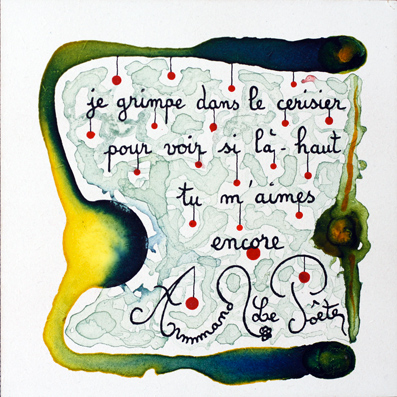 je grimpe dans le cerisier
pour voir si là-haut
tu m'aimes
encore
Armmand Le Poète